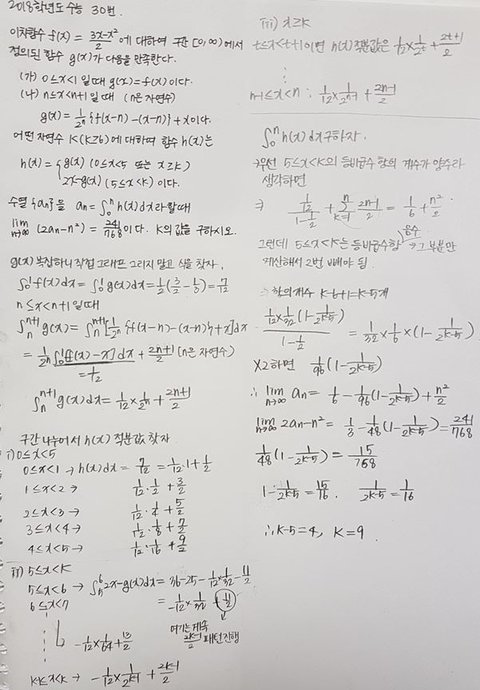 2018학년도 수능 30번.
이차함수 f(x) = (3x-x²)/2 에 대하여 구간 [0, ∞)에서
정의된 함수 g(x)가 다음을 만족한다.
(가) 0≤x<1 일때 g(x)=f(x)이다.
(나) n≤x<n+1 일때 (n은 자연수)
g(x) = 1/2ⁿ {f(x-n)-(x-n)} + x이다.
어떤 자연수 K(K≥6)에 대하여 함수 h(x)는
h(x) = { g(x) (0≤x<5 또는 x≥K)
2x-g(x) (5≤x<K) 이다.
수열 {an}을 an = ∫₀ⁿ h(x)dx라 할때
lim n→∞ (2an-n²) = 241/768 이다. K의 값을 구하시오.
g(x) 복잡하니 직접 그래프 그리지 말고 식을 찾자.
∫₀¹ f(x)dx = ∫₀¹ g(x)dx = 1/2(3/2 - 1/3) = 7/12
n≤x<n+1 일때
∫ₙⁿ⁺¹ g(x) = ∫ₙⁿ⁺¹ [1/2ⁿ {f(x-n)-(x-n)} + x]dx
= 1/2ⁿ ∫₀¹ {f(x)-x}dx + (2n+1)/2 (n은 자연수)
= 1/12
∫ₙⁿ⁺¹ g(x)dx = 1/12 × 1/2ⁿ + (2n+1)/2
구간 나누어서 h(x) 적분값 찾자.
i) 0≤x<5
0≤x<1 → ∫h(x)dx = 7/12 = 1/12·1 + 1/2
1≤x<2 → 1/12·1/2 + 3/2
2≤x<3 → 1/12·1/4 + 5/2
3≤x<4 → 1/12·1/8 + 7/2
4≤x<5 → 1/12·1/16 + 9/2
ii) 5≤x<K
5≤x<6 → ∫₅⁶ 2x-g(x)dx = 36-25-1/12×1/32-11/2
6≤x<7 = -1/12×1/32 + 11/2
-1/12×1/64 + 13/2 여기는 계속
(2k-1)/2 패턴진행
K-1≤x<K → -1/12×1/2ᴷ⁻¹ + (2K-1)/2
iii) x≥K
t≤x<t+1이면 h(x)적분값은 1/12×1/2ᵗ + (2t+1)/2
n-1≤x<n : 1/12×1/2ⁿ⁻¹ + (2n-1)/2
∫₀ⁿ h(x)dx구하자.
→ 우선 5≤x<K의 등비급수 항의 계수가 양수라
생각하면
⇒ (1/12)/(1-1/2) + Σₖ₌₁ⁿ (2k-1)/2 = 1/6 + n²/2
그런데 5≤x<K는 등비급수항 음수 → 그 부분만
계산해서 2번 빼야 됨.
→ 항의계수 K-6+1=K-5개
(1/12×1/32(1-1/2ᴷ⁻⁵))/(1-1/2) = 1/32×1/6×(1-1/2ᴷ⁻⁵)
×2하면 1/96(1-1/2ᴷ⁻⁵)
∴ lim n→∞ an = 1/6 - 1/96(1-1/2ᴷ⁻⁵) + n²/2
lim n→∞ 2an-n² = 1/3 - 1/48(1-1/2ᴷ⁻⁵) = 241/768
1/48(1-1/2ᴷ⁻⁵) = 15/768
1-1/2ᴷ⁻⁵ = 15/16. 1/2ᴷ⁻⁵ = 1/16
∴ K-5=4, K=9.